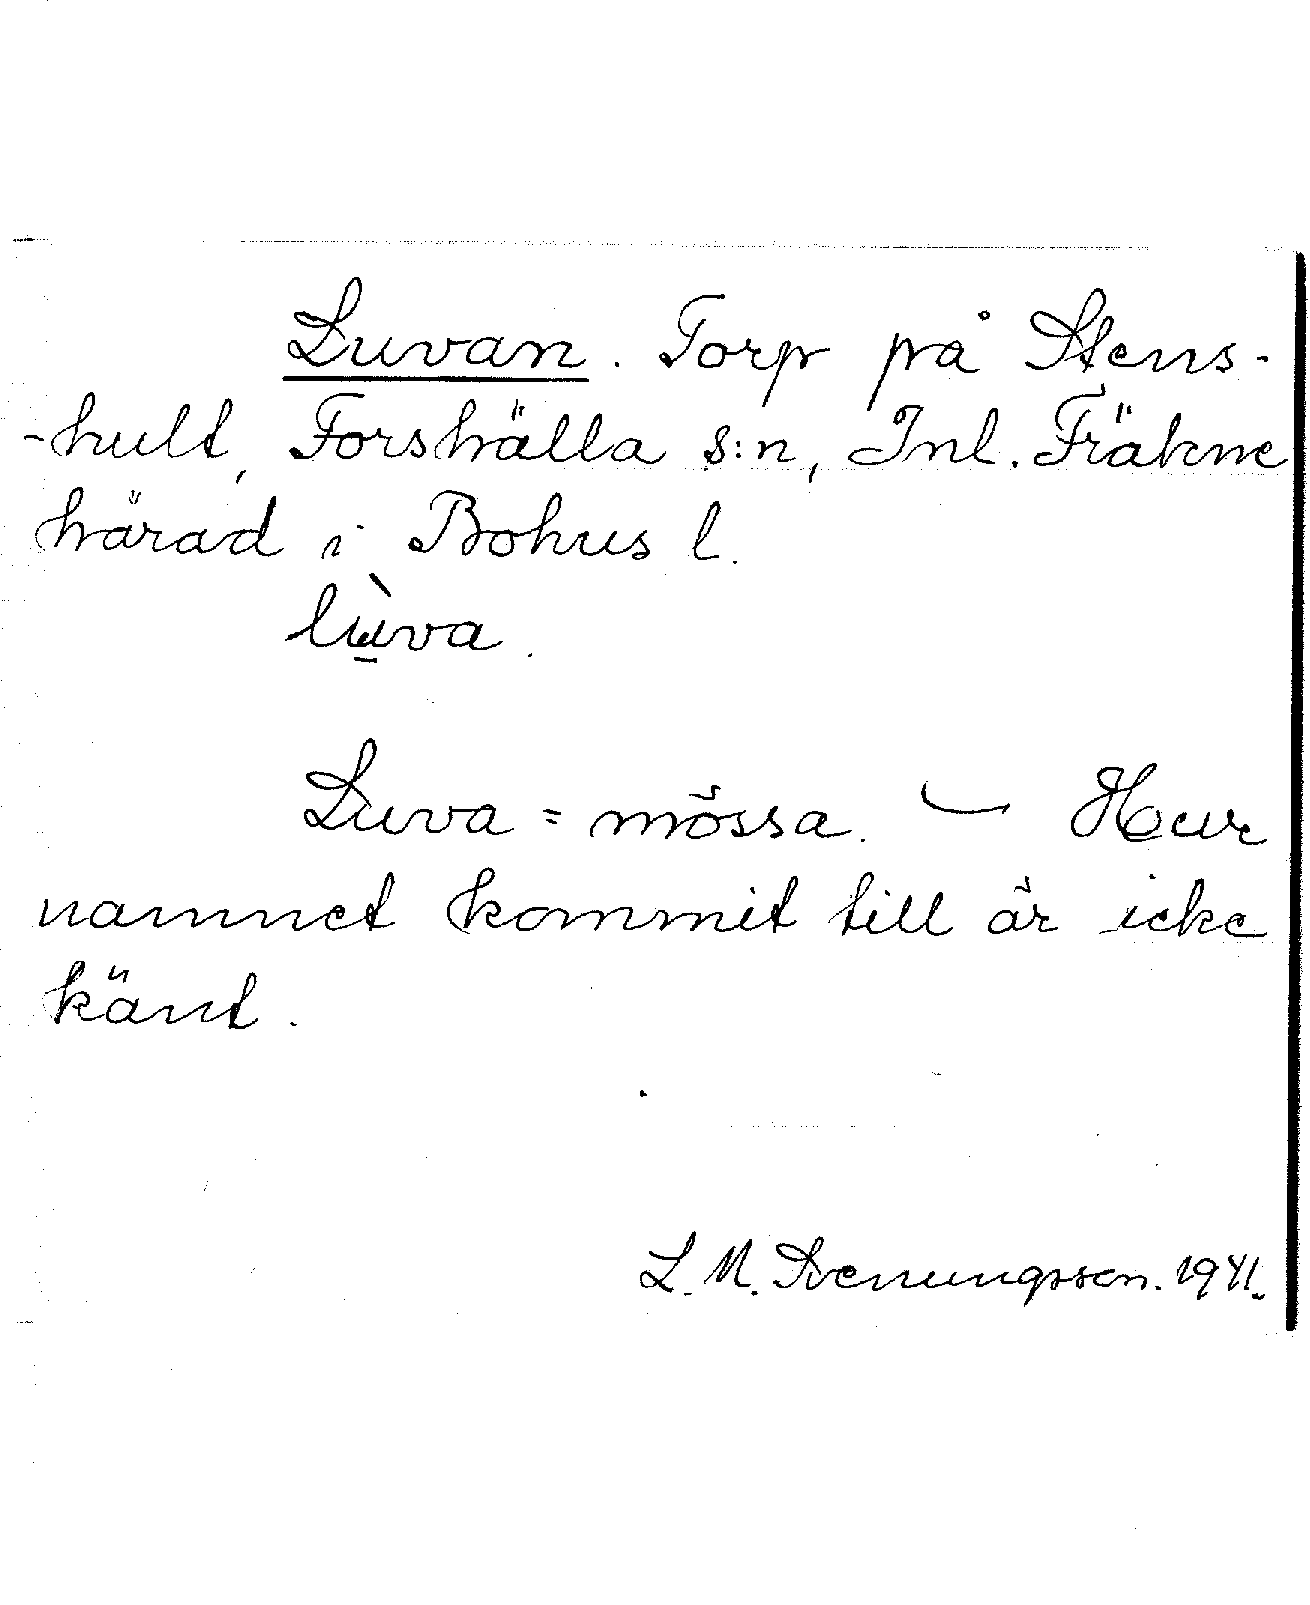 Luvan. Torp på Stens-
-hult, Forshälla s:n, Inl. Fräkne
härad i Bohus l.
lù̱va.
Luva = mössa. — Hur
namnet kommit till är icke
känt.
L. M. Svenungsson. 1941.